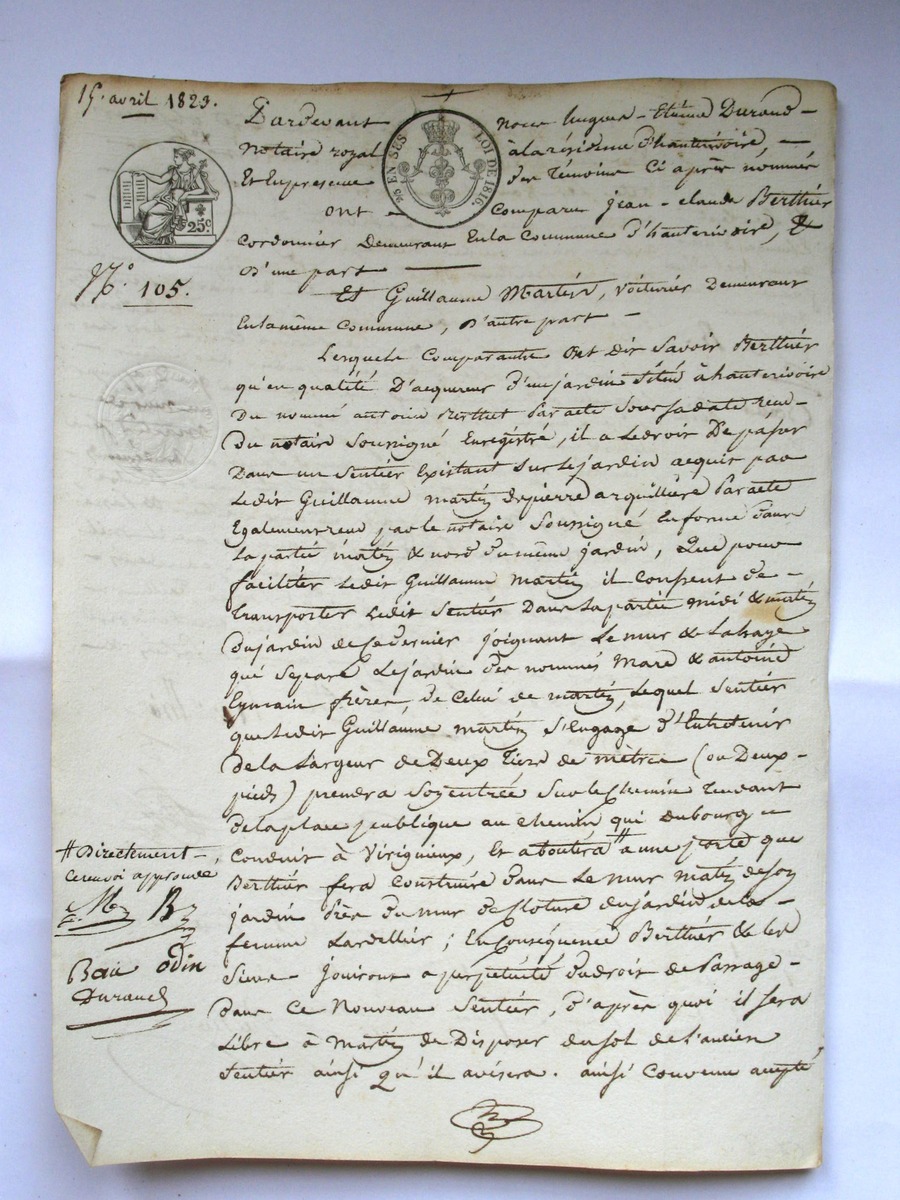 15. avril 1823.
Pardevant nous hugues - Etiene Durand -
notaire royal à la résidence d'hauterivoire, -
Et En presence des Temoins Ci après nommés
ont - Comparu jean - claude Berthier
25 EN SUS
LOI DE 1816.
25c.
cordonnier Demeurant En la Commune d'hauterivoire,
D'une part
N.° 105.
Et Guillaume Martin, Voiturier Demeurant
En la même Commune, D'autre part -
Lesquels Comparants Ont dit Savoir Berthier
qu'en qualité D'acquereur d'un jardin Situé à hauterivoire
Du nommé antoine Berthet Par acte Sous sa date reçu -
Du notaire Soussigné Enregistré, il a Le droit De passer
Dans un Sentier Existant Sur Le jardin acquis par
Ledit Guillaume martin de pierre arquillière Par acte
Egalement reçu par le notaire Soussigné En forme dans
La partie matin & nord du même jardin, Que pour
faciliter Ledit Guillaume martin il Consent de -
transporter Ledit Sentier Dans La partie midi & matin
du jardin de Ce dernier joignant Le mur & La haye
qui Separe Le jardin des nommés Marc & antoine
frères, de Celui de martin, Lequel Sentier
que Ledit Guillaume martin S'Engage d'Entretenir
de la Largeur de Deux Tiers de mètres (ou Deux -
pieds) prendra Son entrée Sur Le Chemin Tendant
de la place publique au Chemin qui du bourg
Conduit à Virigneux, Et aboutira # a une porte que
Berthier fera Construire dans Le mur matin de son
jardin Près du mur de Cloture du jardin de la -
femme Lardellier; En Conséquence Berthier & les
Siens - jouiront a perpetuité du droit de Passage -
dans Ce Nouveau Sentier, d'après quoi il Sera
Libre à Martin de Disposer du Sol de l'ancien
Sentier ainsi qu'il avisera. ainsi Convenu accepté
# Directement -
Ce renvoi approuvé
M B
Odin
Durand